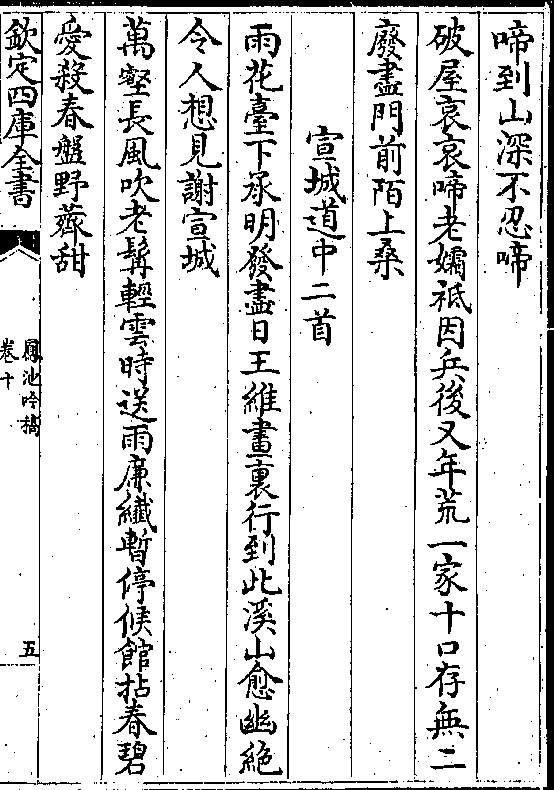 啼到山深不忍啼
破屋哀哀啼老孀祗因兵後又年荒一家十口存無二
廢盡門前陌上桑
宣城道中二首
雨花臺下承明發盡日王維畫裏行到此溪山愈幽絶
令人想見謝宣城
萬壑長風吹老髯輕雲時送雨廉纖暫停候館拈春碧
愛殺春盤野薺甜
欽定四庫全書
鳳池吟稿
卷十
五